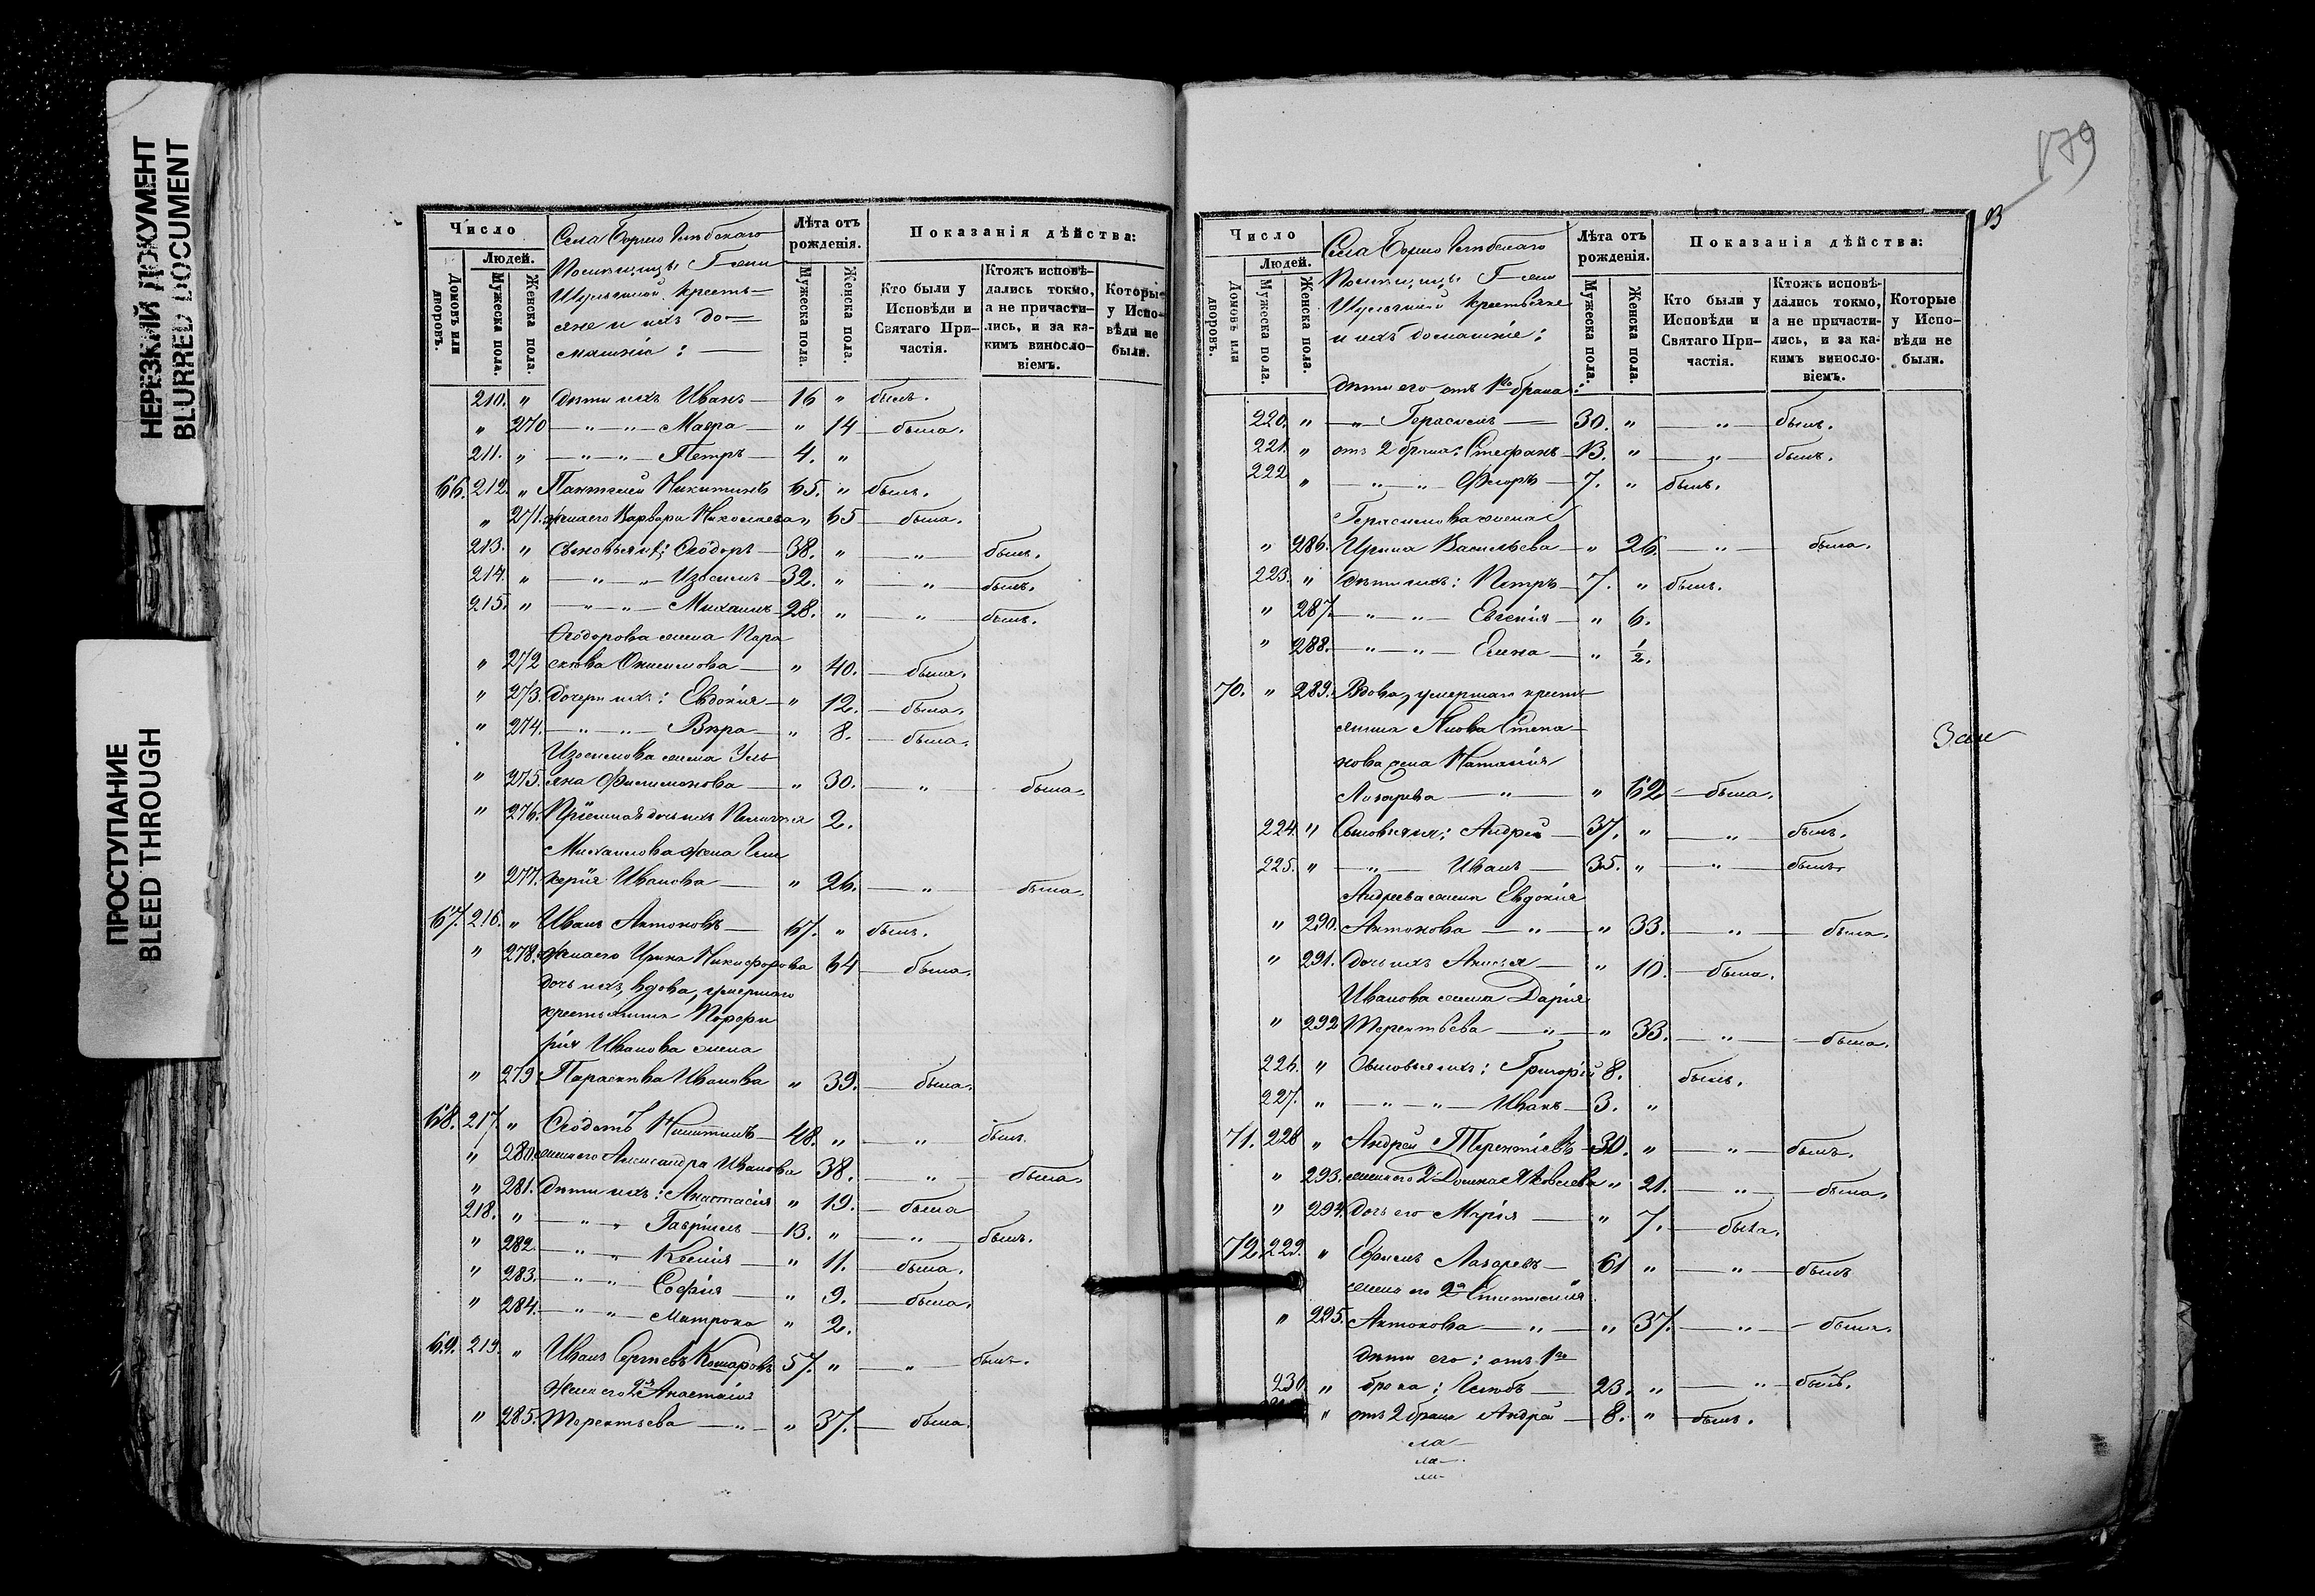 НЕРЕЗКИЙ ДОКУМЕНТ
BLURRED DOCUMENT
ПРОСТУПАНИЕ
BLEED THROUGH
Число
Людей.
Домовъ или дворовъ.
Мужеска пола.
Женска пола.
Села
крестьяне и ихъ домашнiе:
Лѣта отъ рожденiя.
Мужеска пола.
Женска пола.
Показанiя дѣйства:
Кто были у Исповѣди и Святаго Причастiя.
Ктожъ исповѣдались токмо, а не причастились, и за какимъ винословiемъ.
Которые у Исповѣди не были.
210. " дѣти ихъ Иванъ — 16 " былъ.
" 270 — " — " — Мавра — " 14 — была.
211. " — " — " — Петръ — 4. "
66. 212. " Пантелей Никитинъ 65. " былъ.
" 271. жена его Варвара Николаева " 65 — была.
213. " сыновья их: Ѳеодоръ — 38. " — " — былъ.
214. " — " — " — Изосимъ — 32. " — " — былъ.
215. " — " — " — Михаилъ — 28. " — " — былъ.
Ѳеодорова жена Пара
" 272 скева Онисимова — " 40. — была.
" 273. дочери ихъ: Евдокiя — " 12. — была.
" 274. — " — " — Вѣра — " 8. — была.
Изосимова жена Уль
" 275. яна Филимонова — " 30. — " — была.
" 276. Прiемная дочь ихъ Пелагiя 2.
Михаилова жена Гли
" 277. керiя Иванова — " 26. — " — была.
67. 216. " Иванъ Антоновъ — 67. " былъ.
" 278. жена его Ирина Никифорова 64 — была.
дочь ихъ, вдова, умершаго
крестьянина Порфи
рiя Иванова жена
" 279. Параскева Иванова " 39. — была.
68. 217. " Ѳеодотъ Никитинъ — 48. " — " — былъ.
" 280. жена его Александра Иванова 38. — " — была.
" 281. дѣти ихъ: Анастасiя " 19. — была
218. " — " — " Гаврiилъ — 13. " — " — былъ.
" 282. — " — " Ксенiя — " 11. — была.
" 283. — " — " Софiя — " 9. — была.
" 284. — " — " — Матрона " 2.
69. 219. " Иванъ Сергѣевъ Комаровъ 57. " — " — былъ.
жена его 2я Анастасiя
" 285. Терентьева — " — " 37. — была.
179
Число
Людей.
Домовъ или дворовъ.
Мужеска пола.
Женска пола.
Села
крестьяне
и ихъ домашнiе:
Лѣта отъ рожденiя.
Мужеска пола.
Женска пола.
Показанiя дѣйства:
Кто были у Исповѣди и Святаго Причастiя.
Ктожъ исповѣдались токмо, а не причастились, и за какимъ винословiемъ.
Которые у Исповѣди не были.
дѣти его отъ 1го брака:
220. " — " — Герасимъ — 30. " — " — былъ.
221. " отъ 2 брака: Стефанъ — 13. " — " — былъ.
222 " — " — " — Флоръ — 7. " былъ.
Герасимова жена
" 286. Ирина Васильева — " 26. — " — была.
223. " дѣти ихъ: Петръ — 7. " былъ.
" 287. — " — " — Евгенiя — " 6.
" 288. — " — " — Елена — " ½.
70. " 289. Вдова, умершаго кресть
янина Степа
нова жена Наталiя
Лазарева — " — " 62 — была.
224. " Сыновья ея: Андрей — 37. " — " — былъ.
225. " — " — Иванъ — 35. " — " — былъ.
Андреева жена Евдокiя
" 290. Антонова — " — " 33. — " — была.
" 291. дочь ихъ Анисья — " 10. — была.
Иванова жена Дарiя
" 292 Терентьева — " — " 33. — " — была.
226. " Сыновья ихъ: Григорiй 8. былъ.
227. " — " — " — Иванъ — 3. "
71. 228 " Андрей Терентiевъ — 30. " — " — былъ.
" 293. жена его 2я Домна Яковлева " 21. — " — была.
" 294. дочь его Марiя — " 7. — была.
72. 229. " Ефимъ Лазаревъ — 61 " — " — былъ
жена его 2я
" 295. Антонова — " — " 37. — " — была.
дѣти его: отъ 1го
230 " брака: Глѣбъ — 23. " — " — былъ.
" отъ 2 брака Андрей — 8. " — былъ.